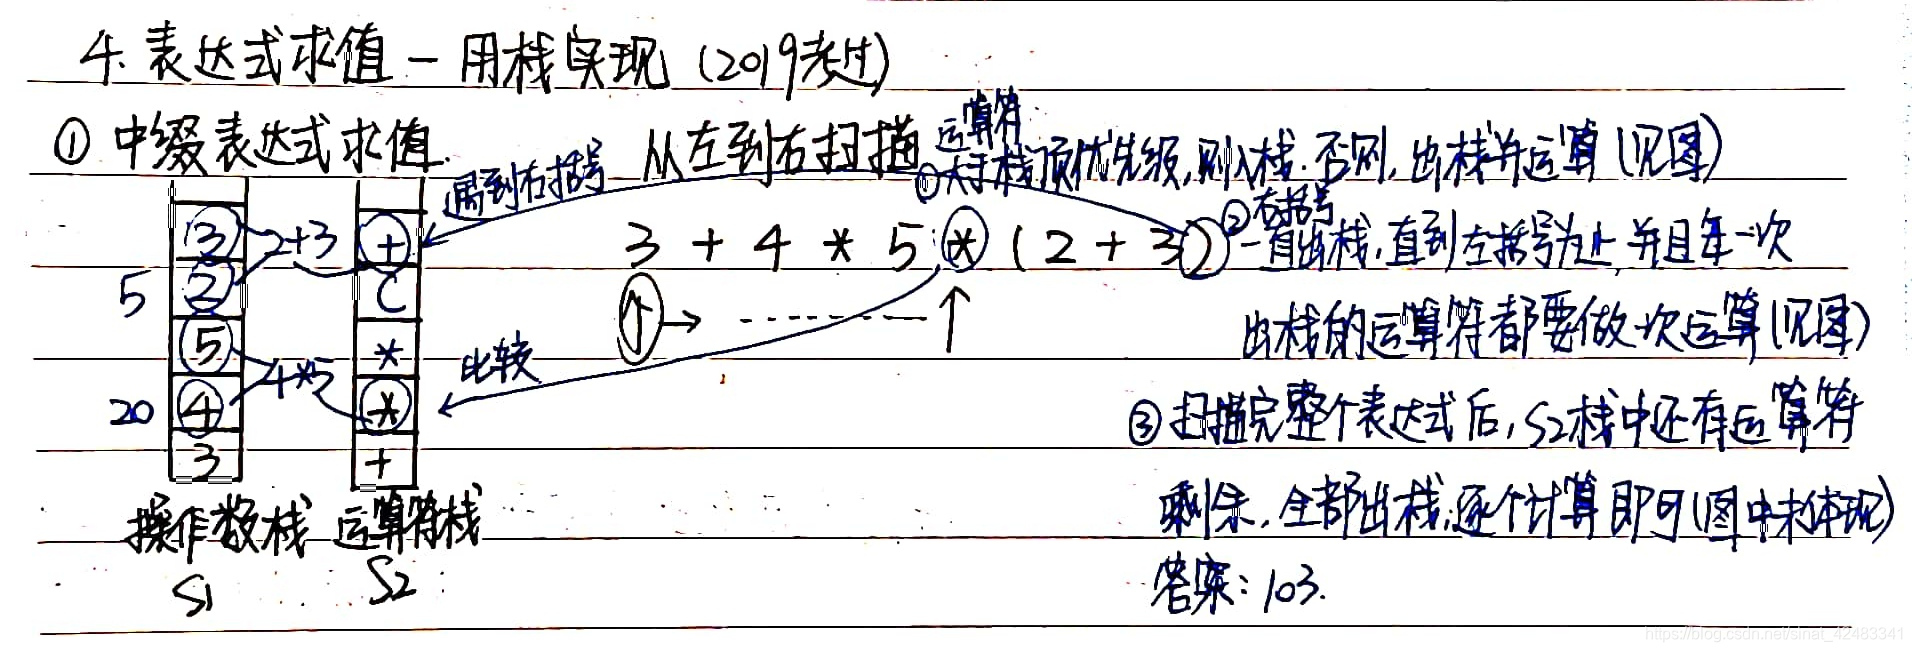 4. 表达式求值 — 用栈实现 (2019考过)
① 中缀表达式求值. 从左到右扫描
运算符
①大于栈顶优先级,则入栈.否则,出栈并运算(见图)
遇到右括号
3 + 4 * 5 * ( 2 + 3 )
②右括号
一直出栈,直到左括号为止,并且每一次
出栈的运算符都要做一次运算(见图)
3
2
5
4
3
2+3
4*5
5
20
+
(
*
*
+
比较
③扫描完整个表达式后,S2栈中还有运算符
剩余,全部出栈,逐个计算即可(图中未体现)
操作数栈 运算符栈
S1 S2
答案: 103.
https://blog.csdn.net/sinat_42483341